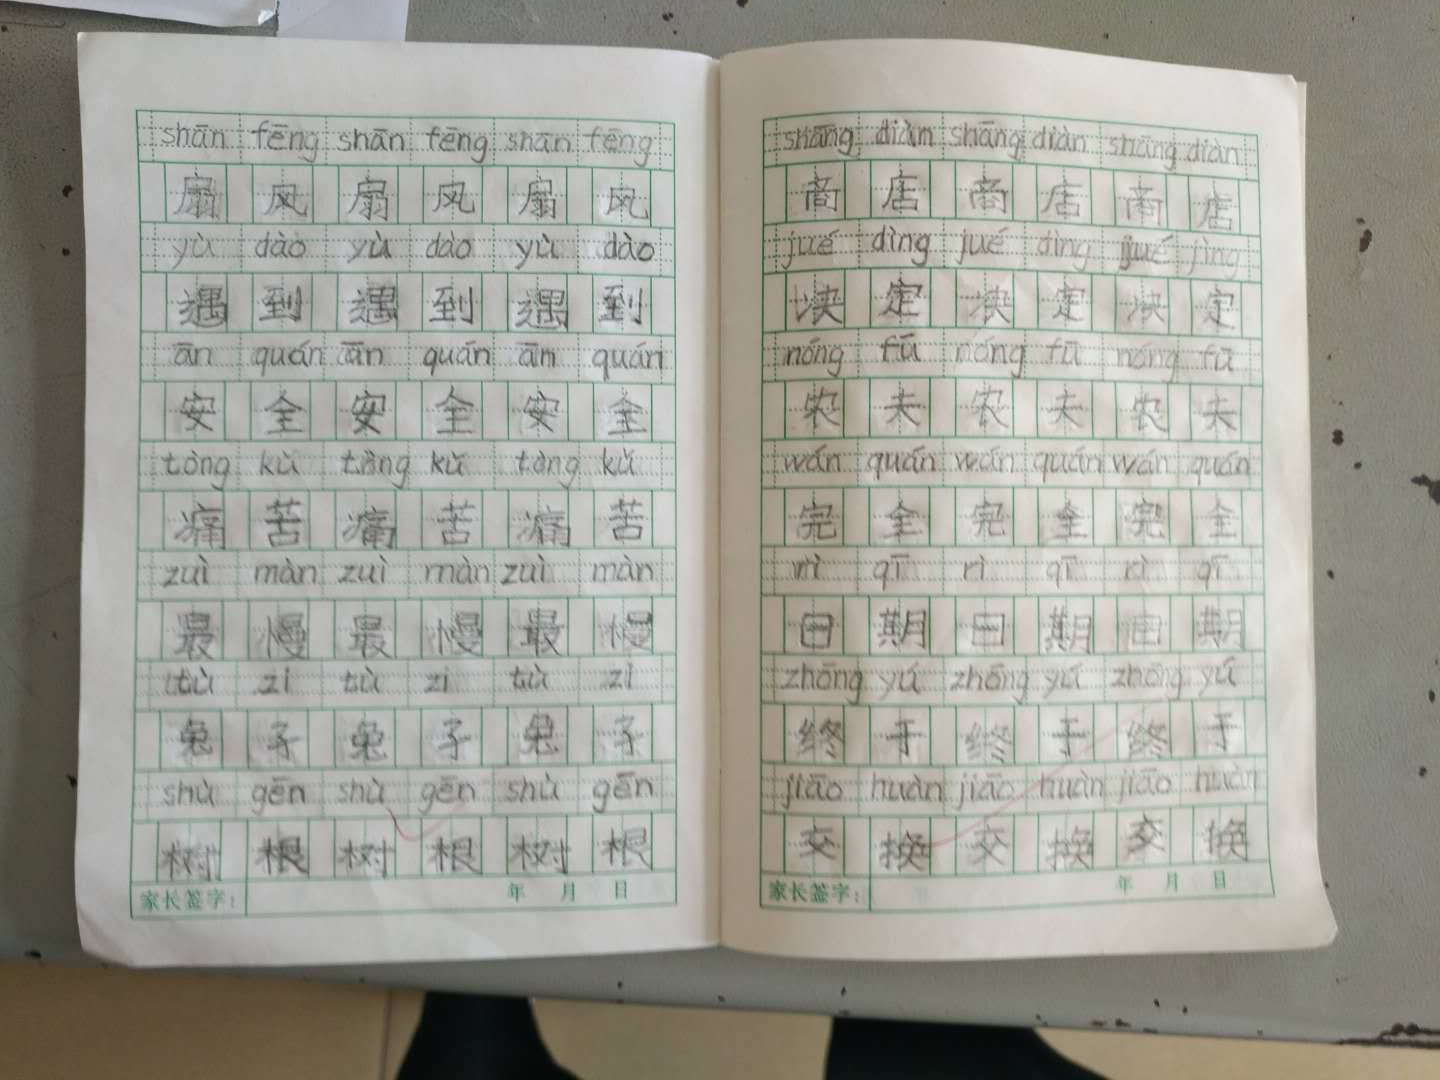 shān fēng shān fēng shān fēng
扇 风 扇 风 扇 风
yù dào yù dào yù dào
遇 到 遇 到 遇 到
ān quán ān quán ān quán
安 全 安 全 安 全
tòng kǔ tòng kǔ tòng kǔ
痛 苦 痛 苦 痛 苦
zuì màn zuì màn zuì màn
最 慢 最 慢 最 慢
tù zi tù zi tù zi
兔 子 兔 子 兔 子
shù gēn shù gēn shù gēn
树 根 树 根 树 根
家长签字: 年 月 日
shāng diàn shāng diàn shāng diàn
商 店 商 店 商 店
jué dìng jué dìng jué jìng
决 定 决 定 决 定
nóng fū nóng fū nóng fū
农 夫 农 夫 农 夫
wán quán wán quán wán quán
完 全 完 全 完 全
rì qī rì qī rì qī
日 期 日 期 日 期
zhōng yú zhōng yú zhōng yú
终 于 终 于 终 于
jiāo huàn jiāo huàn jiāo huàn
交 换 交 换 交 换
家长签字: 年 月 日